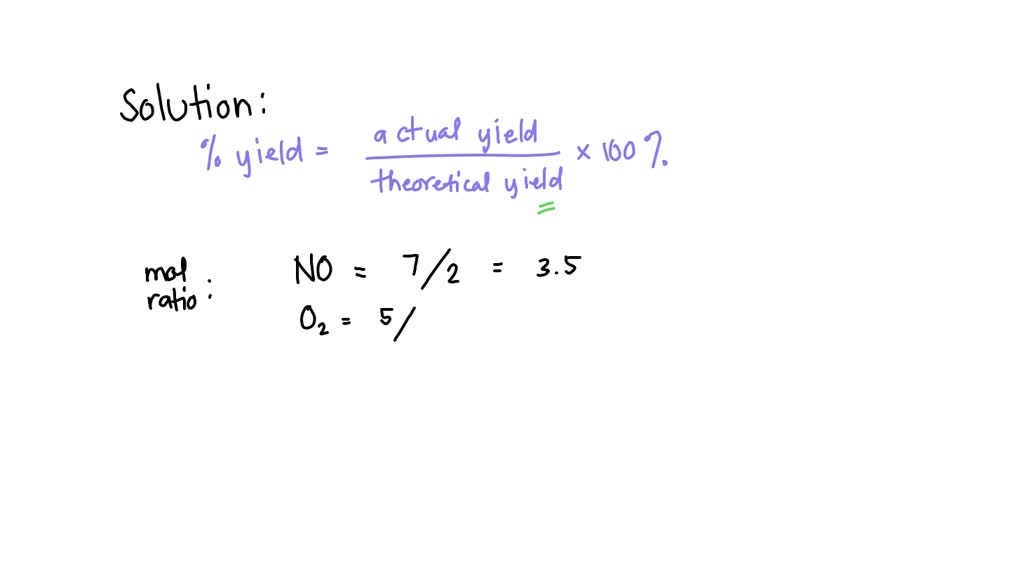 Solution:
% yield = actual yield / theoretical yield × 100%
mol ratio: NO = 7/2 = 3.5
O₂ = 5/